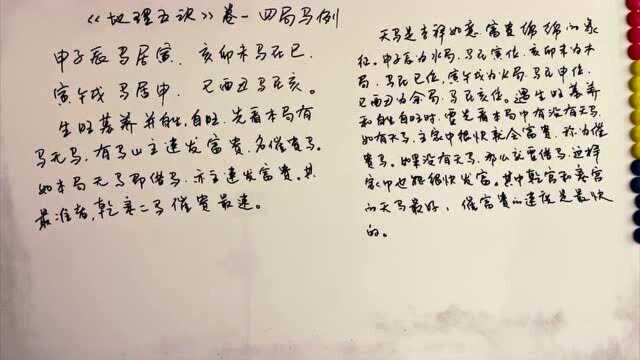 《地理五诀》卷一四局马例
申子辰马居寅，亥卯未马在巳
寅午戌马居申，巳酉丑马在亥。
生旺墓养并自生，自旺，先看本局有
马无马，有马山主速发富贵，名催贵马。
如本局无马即借马，亦主速发富贵。其
最准者，乾离二马催贵最速。
天马是吉祥如意富贵绵绵的象
征。申子辰为水局，马在寅位，亥卯未为木
局，马在巳位，寅午戌为火局，马在申位，
巳酉丑为金局，马在亥位。遇生旺墓养
和自生自旺时，要先看本局中有没有天马，
如有天马，主家中很快就会富贵，称为催
贵马。如果没有天马，那么就要借马，这样
家中也能很快发富。其中乾宫和离宫
的天马最好，催富贵的速度是最快
的。